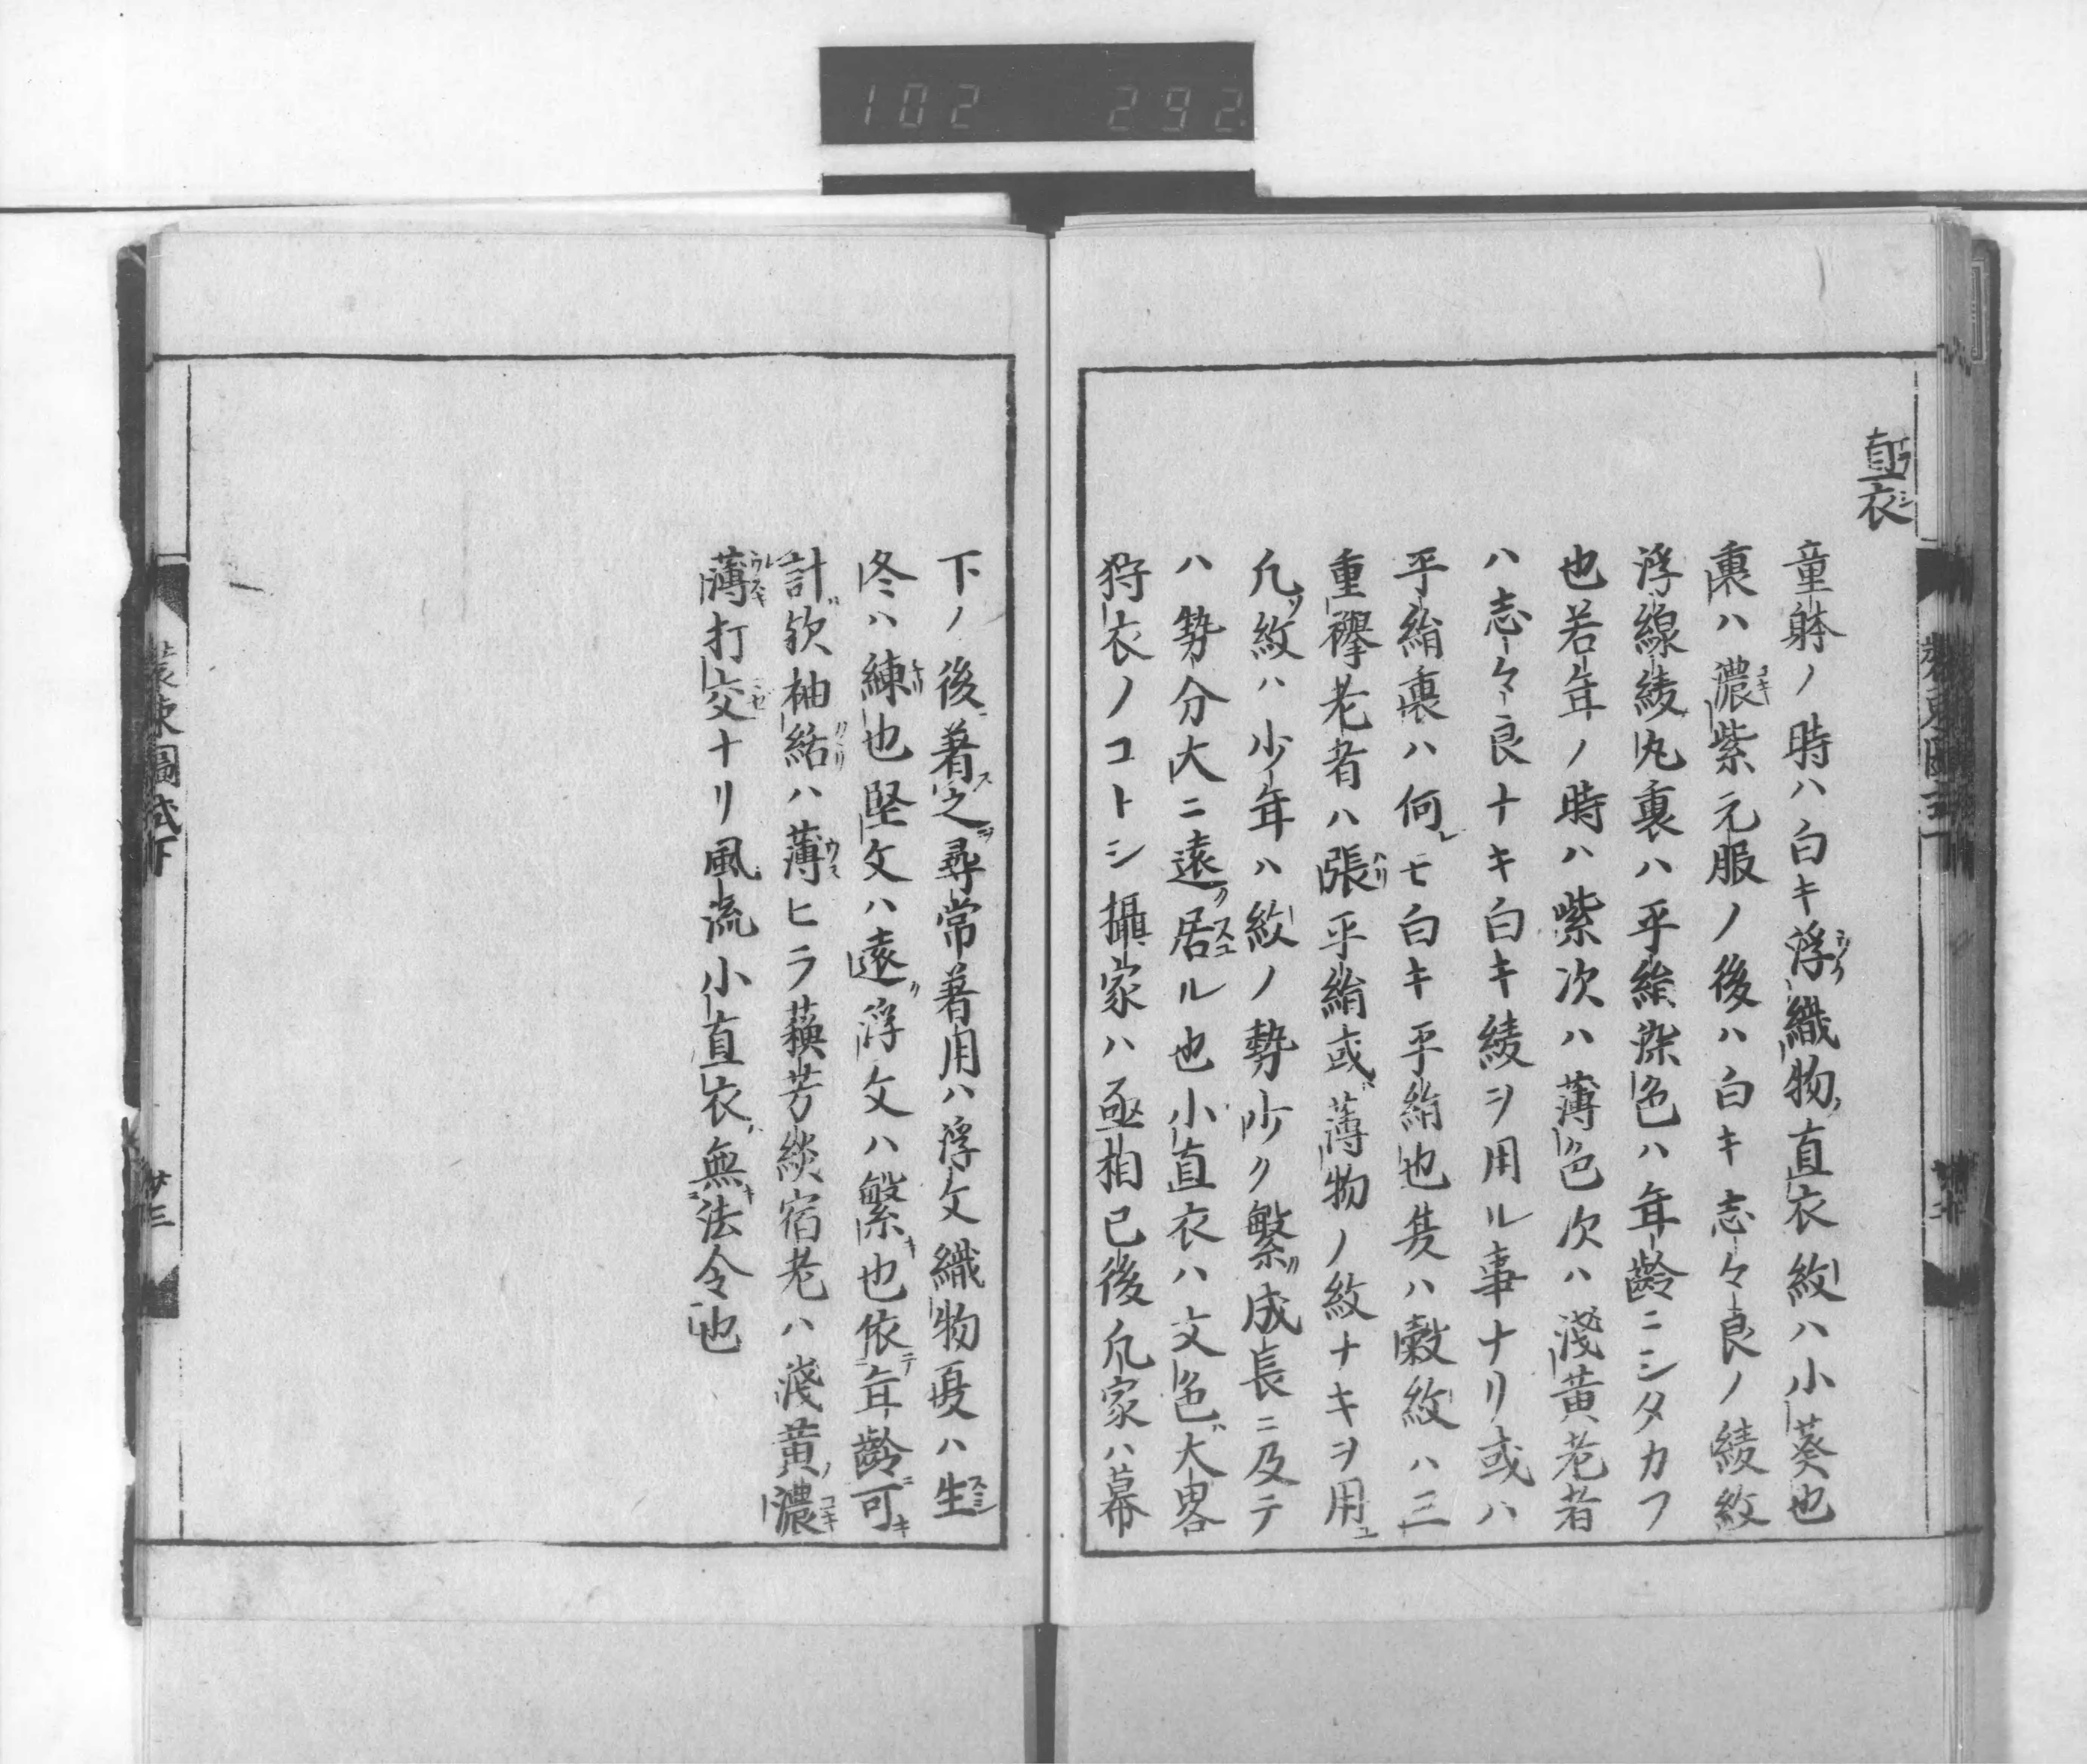 102 292
直衣
童躰ノ時ハ白キ浮織物直衣紋ハ小葵也
裏ハ濃紫元服ノ後ハ白キ志々良ノ綾紋
浮線綾丸裏ハ平絹染色ハ年齢ニシタカフ
也若年ノ時ハ紫次ハ薄色次ハ淺黄老者
ハ志々良ナキ白キ綾ヲ用ル事ナリ或ハ
平絹裏ハ何レモ白キ平絹也夏ハ縠紋ハ三
重襷老者ハ張平絹或薄物ノ紋ナキヲ用ユ
凡紋ハ少年ハ紋ノ勢少ク繁成長ニ及テ
ハ勢分大ニ遠居ル也小直衣ハ文色大畧
狩衣ノコトシ攝家ハ丞相已後凡家ハ幕
下ノ後著之尋常著用ハ浮文織物夏ハ生
冬ハ練也堅文ハ遠浮文ハ繁也依年齢可
計欤袖結ハ薄ヒラ蘓芳緂宿老ハ淺黄濃
薄打交ナリ風流小直衣無法令也
裝束圖式下
廿三